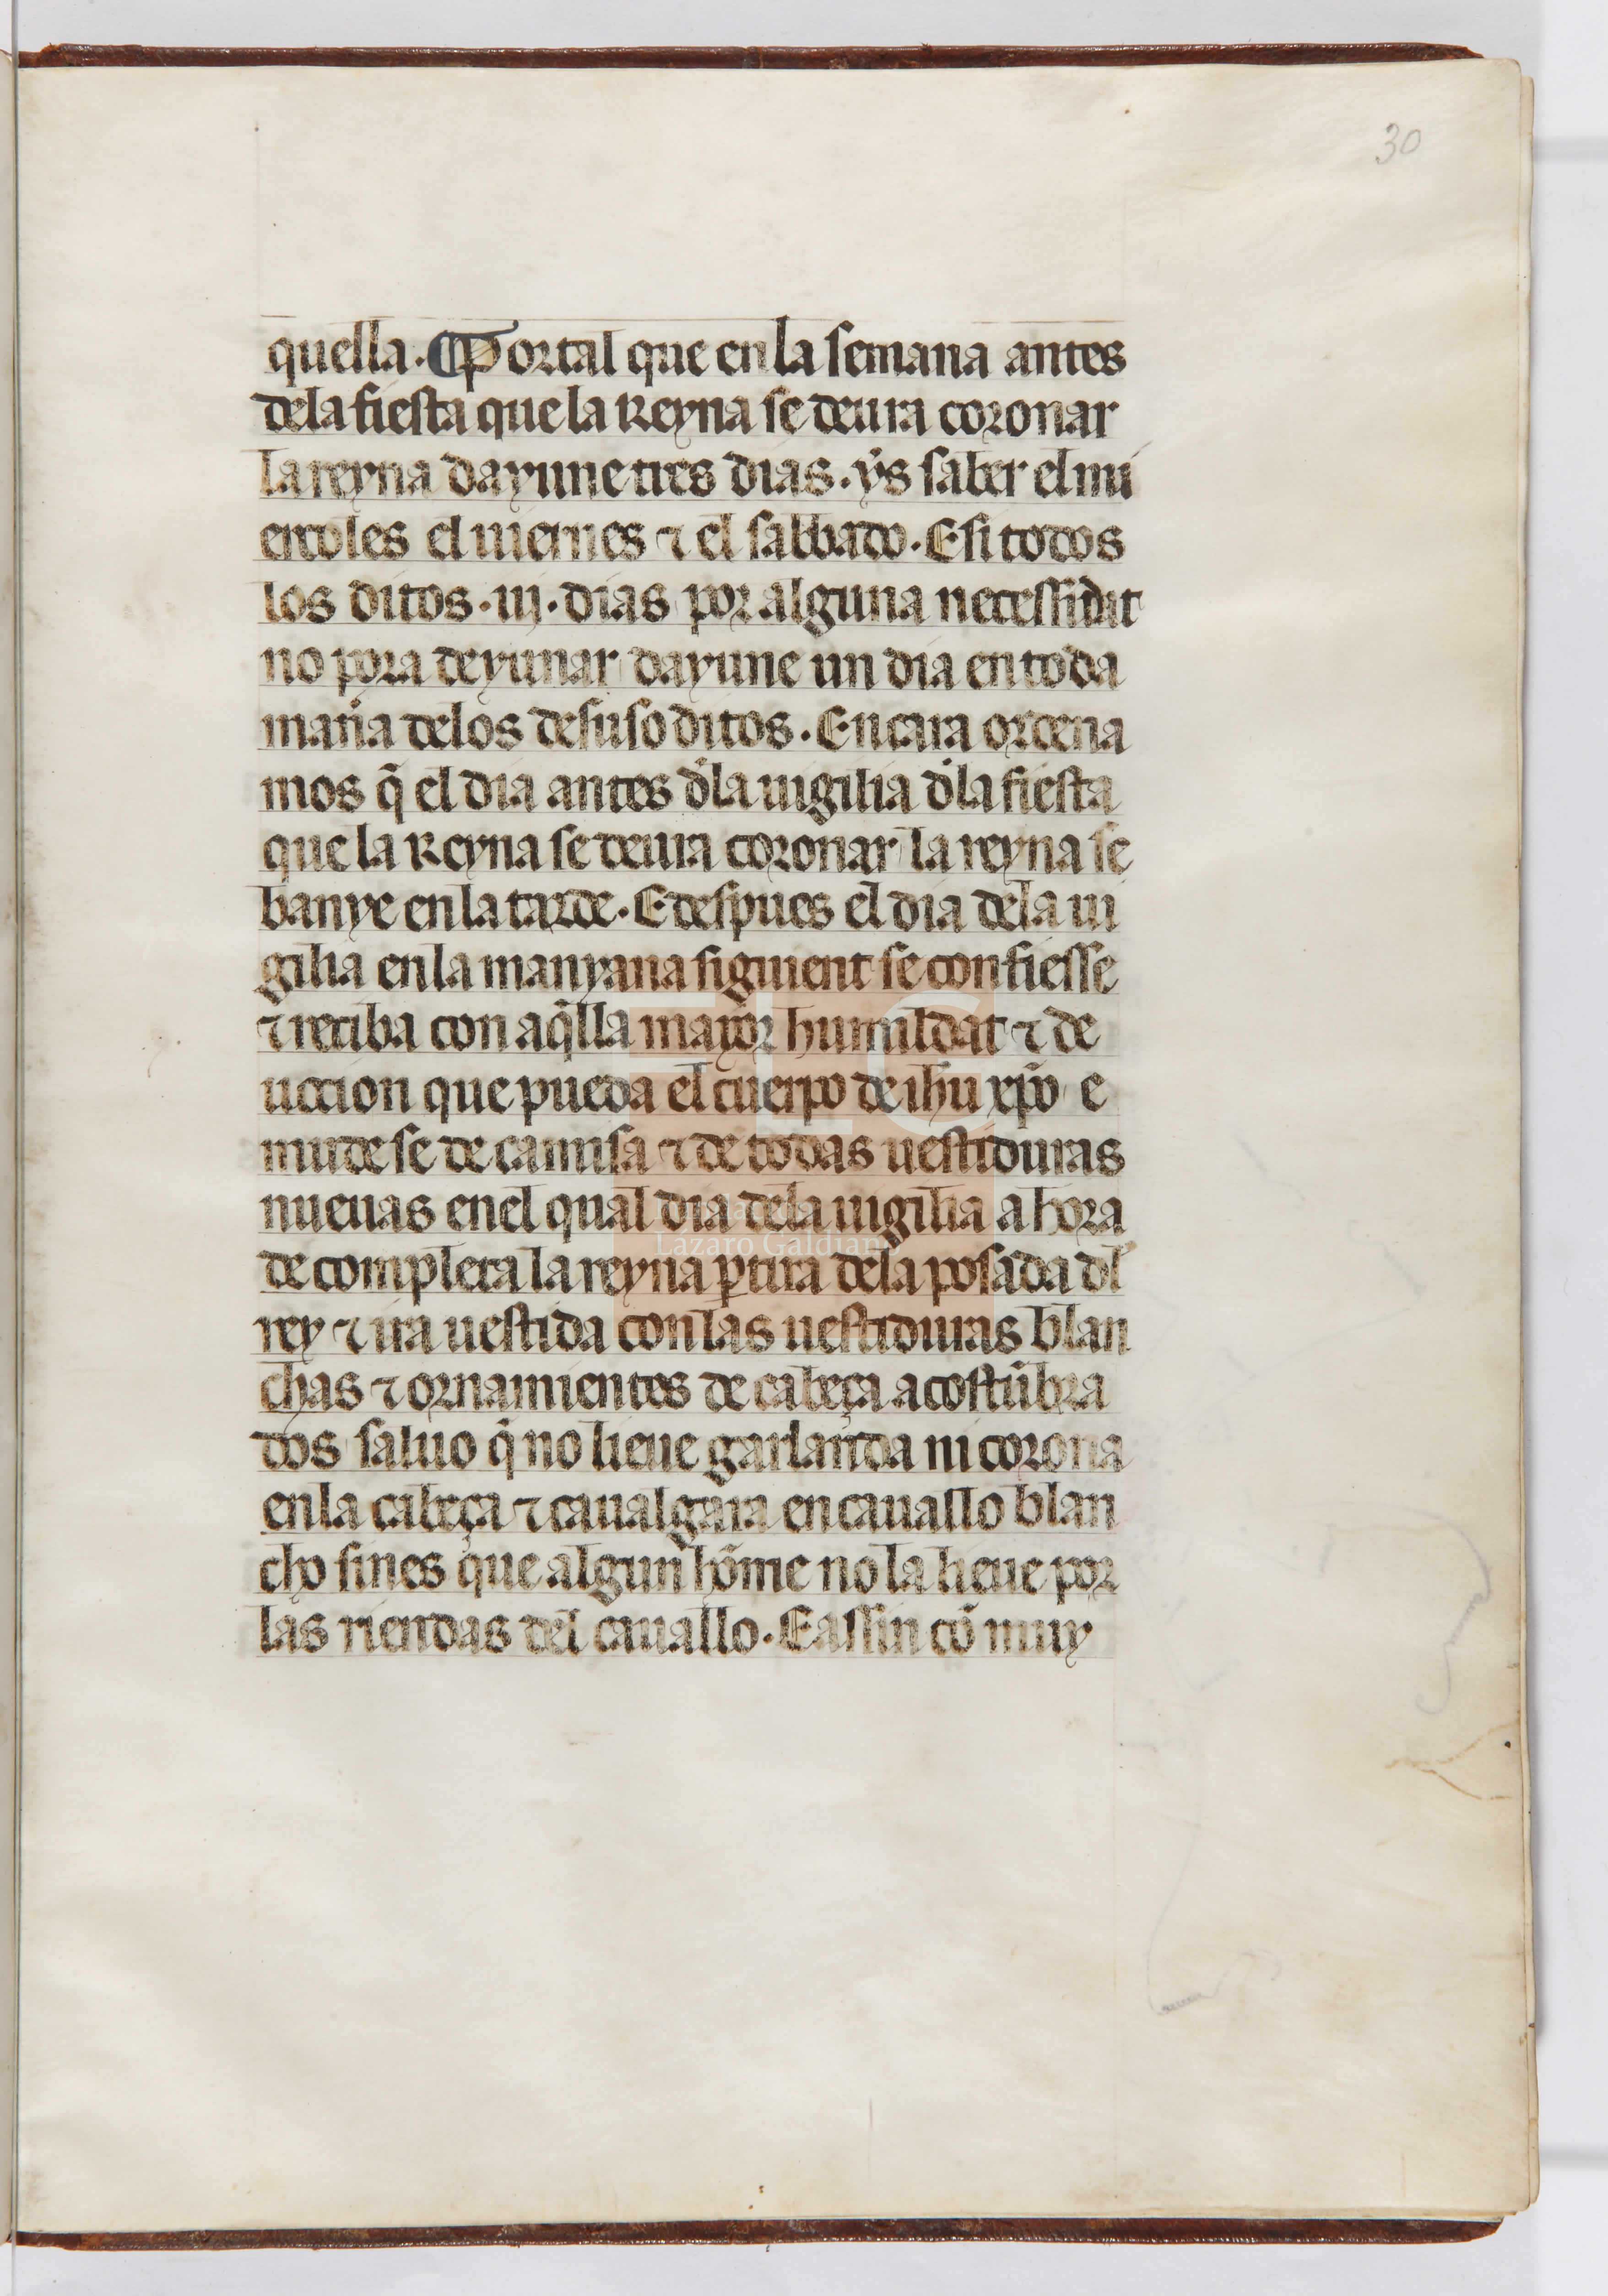 30
quella. ¶ Por tal que en la semana antes
dela fiesta que la Reyna se deura coronar
la reyna dayune tres dias. ẏs saber el mi
ercoles el uiernes ⁊ el sabbado. E si todos
los ditos .iij. dias por alguna necessidat
no pora deyunar dayune un dia en toda
mañia delos desuso ditos. Encara ordena
mos q̃ el dia antes d̃la uigilia d̃la fiesta
que la Reyna se deura coronar la reyna se
banye en la tarde. E despues el dia dela ui
gilia en la manyana siguient se confiesse
⁊ reciba con aq̃lla mayor humildat ⁊ de
uocion que pueda el cuerpo de ihu xp̃o e
mude se de camisa ⁊ de todas uestiduras
nueuas en el qual dia dela uigilia a hora
de completa la reyna ꝑtira dela posada dl̃
rey ⁊ ira uestida con las uestiduras blan
chas ⁊ ornamientes de cabeça acostũbra
dos saluo q̃ no lieue garlanda ni corona
en la cabeça ⁊ caualgara en cauallo blan
cho sines que algun hõme no la lieue por
las riendas del cauallo. E assin cõ muy
Lázaro Galdiano